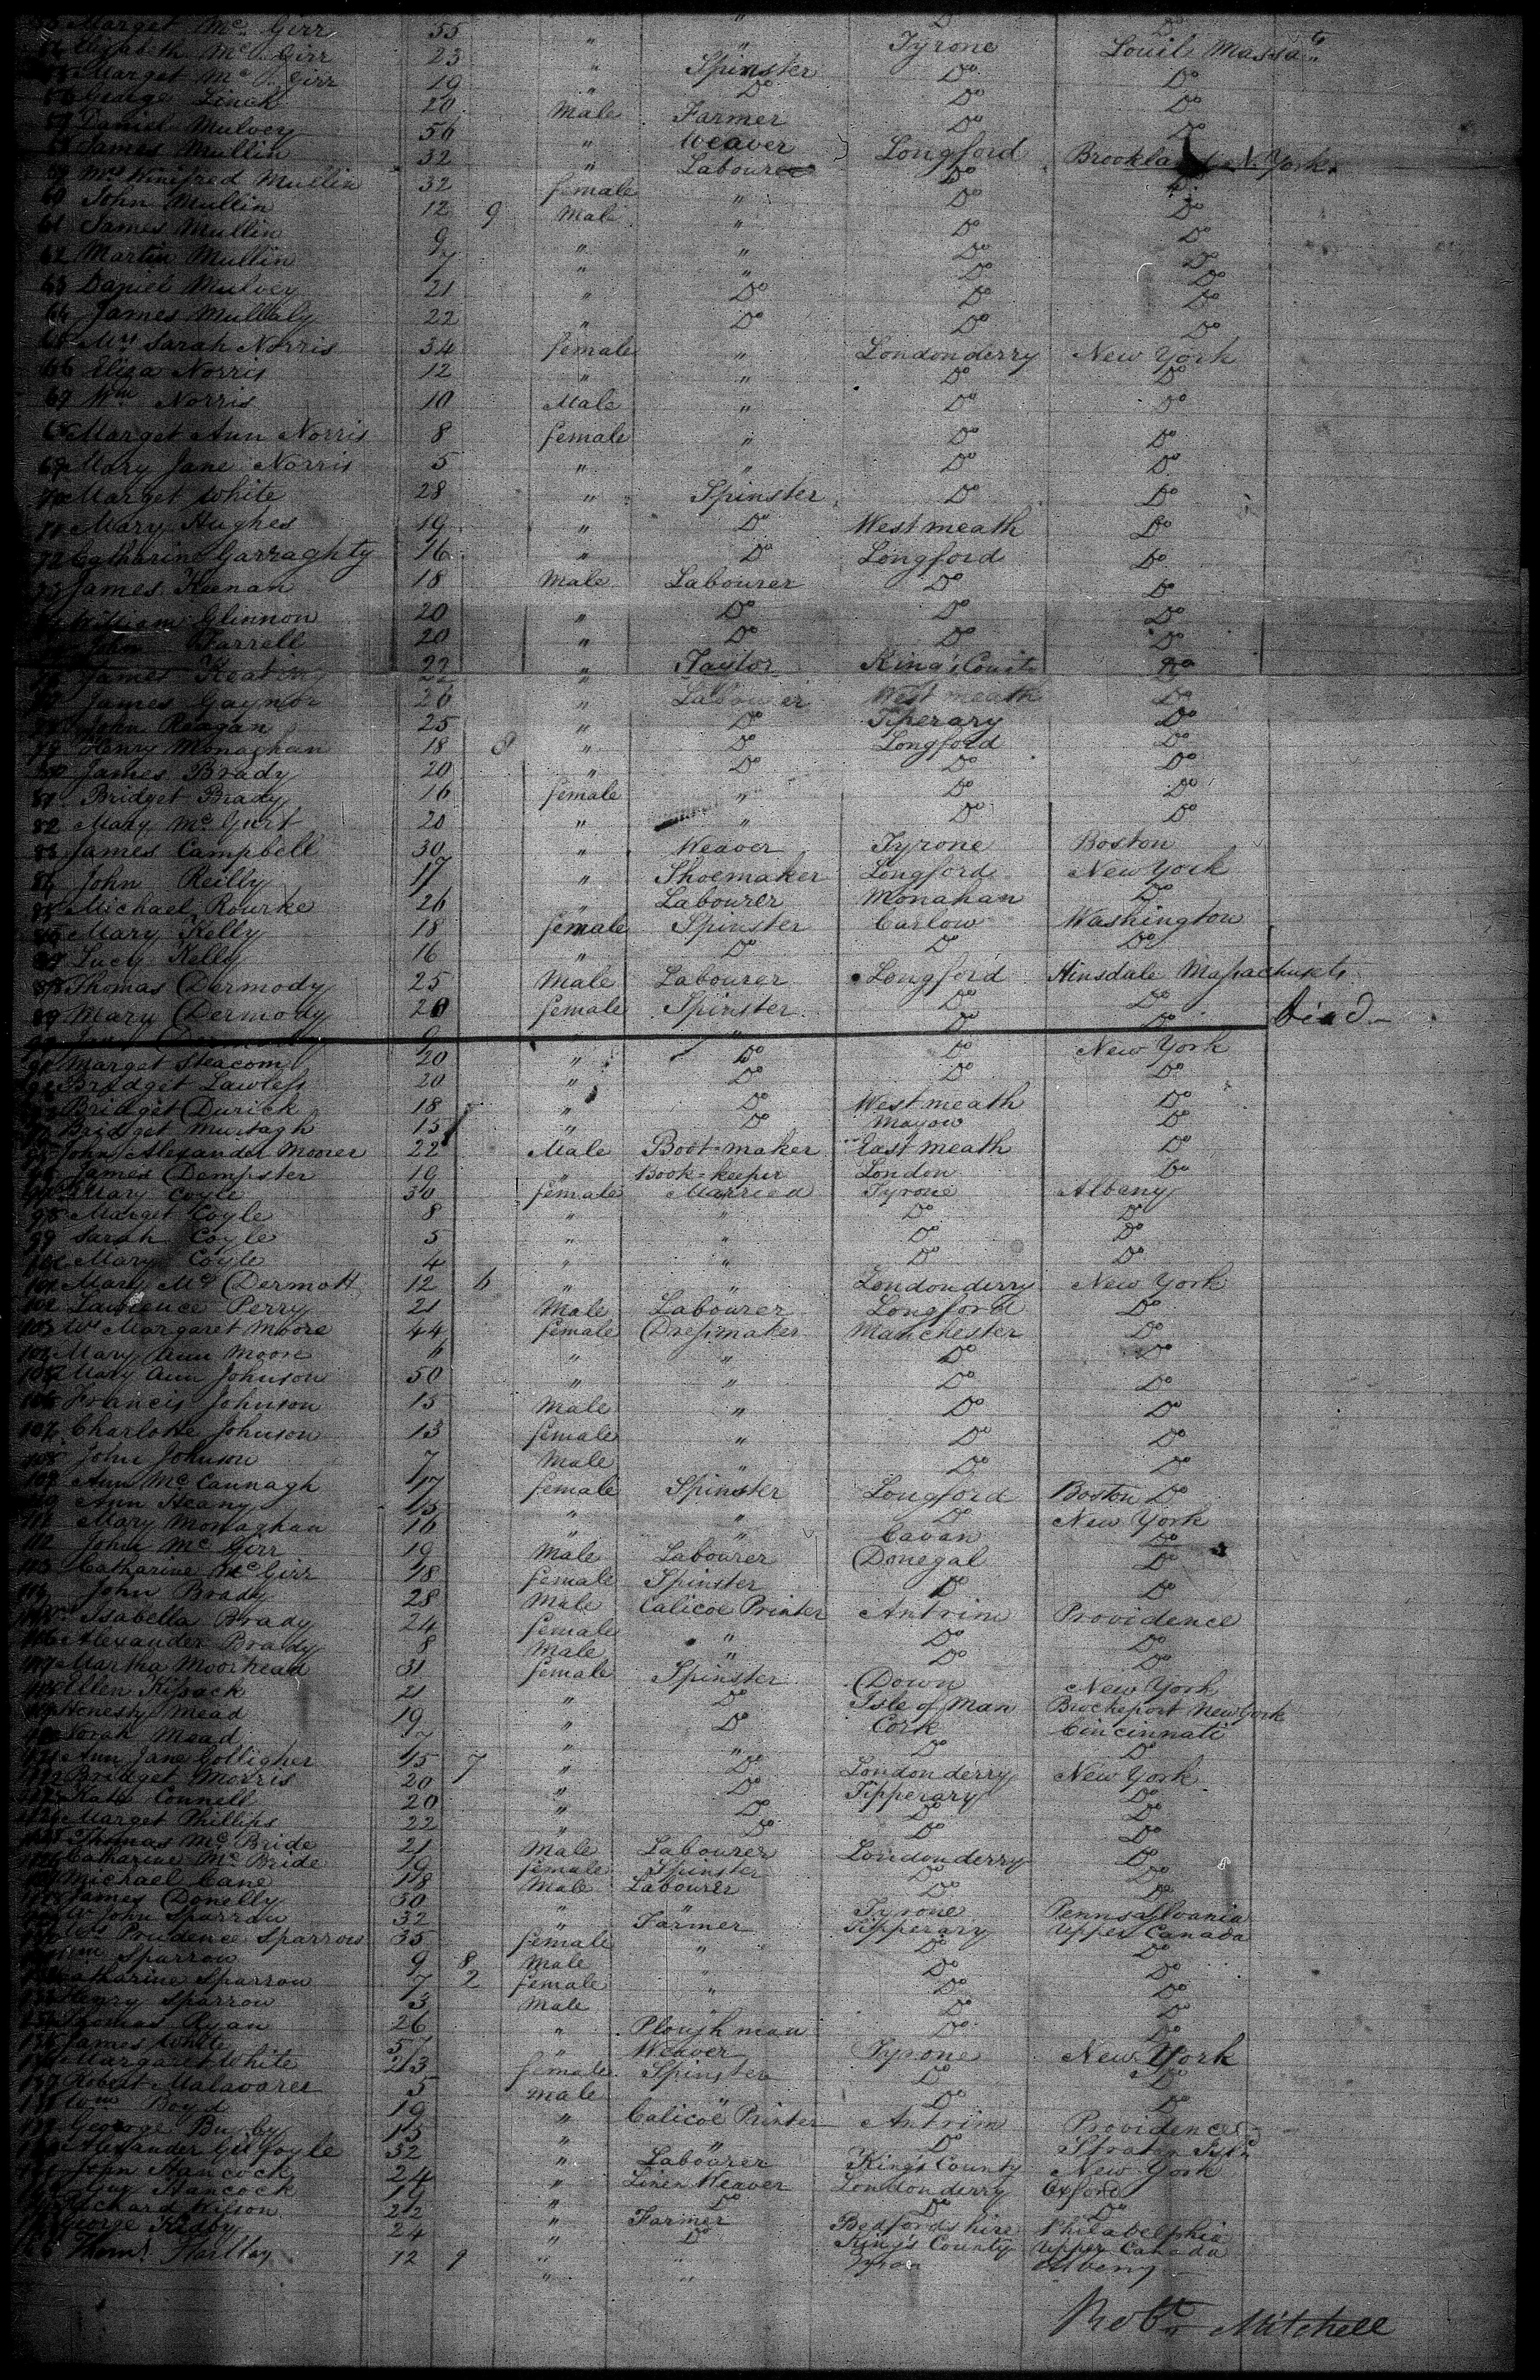 Marget Mc Girr 55 " " Do Do
Mc Girr 23 " " Tyrone Louil Massa
Marget Mc Girr 19 " Spinster Do Do
George Linch 20 " Do Do Do
57 Daniel Mulvey 56 Male Farmer Do Do
James Mullin 32 " Weaver Longford N. York
59 Mrs Winifred Mullin 32 female Labourer Do Do
60 John Mullin 12 9 Male " Do Do
61 James Mullin 9 " " Do Do
62 Martin Mullin 7 " " Do Do
63 Daniel Mulvey 21 " Do Do Do
64 James Mullaly 22 " Do Do Do
65 Mrs Sarah Norris 34 female " Londonderry New York
66 Eliza Norris 12 " " Do Do
67 Wm Norris 10 Male " Do Do
68 Marget Ann Norris 8 female " Do Do
69 Mary Jane Norris 5 " " Do Do
70 Marget White 28 " Spinster Do Do
71 Mary Hughes 19 " Do Westmeath Do
72 Catharine Garraghty 16 " Do Longford Do
73 James Keenan 18 Male Labourer Do Do
William Glinnon 20 " Do Do Do
John Farrell 20 " Do Do Do
James Keating 22 " Taylor King's County Do
James Gaynor 26 " Labourer West meath Do
John Reagan 25 " Do Tiperary Do
79 Henry Monaghan 18 8 " Do Longford Do
80 James Brady 20 " Do Do Do
81 Bridget Brady 16 female " Do Do
82 Mary Mc Gurt 20 " " Do Do
83 James Campbell 30 " Weaver Tyrone Boston
84 John Reilly 17 " Shoemaker Longford New York
85 Michael Rourke 26 " Labourer Monahan Do
86 Mary Kelly 18 female Spinster Carlow Washington
87 Lucy Kelly 16 " Do Do Do
88 Thomas Dermody 25 Male Labourer Longford Hinsdale Massachusets
89 Mary Dermody 20 female Spinster Do Do
Dermody 9 " " Do Do Died
91 Marget Steacom 20 " Do Do New York
92 Bridget Lawless 20 " Do Do Do
93 Bridget Durick 18 " Do Westmeath Do
94 Bridget Murtagh 15 " Do Mayow Do
95 John Alexander Moorer 22 Male Boot-maker East meath Do
96 James Dempster 19 " Book-keeper London Do
97 Mrs Mary Coyle 30 female Married Tyrone Albany
98 Marget Coyle 8 " " Do Do
99 Sarah Coyle 5 " " Do Do
100 Mary Coyle 4 " " Do Do
101 Mary Mc Dermott 12 6 " " Londonderry New York
102 Lawrence Perry 21 Male Labourer Longford Do
103 Mrs Margaret Moore 44 female Dressmaker Manchester Do
104 Mary Ann Moore " " " Do Do
105 Mary Ann Johnson 50 " " Do Do
106 Francis Johnson 15 Male " Do Do
107 Charlotte Johnson 13 female " Do Do
108 John Johnson 7 Male " Do Do
109 Ann Mc Cannagh 17 female Spinster Longford Boston Do
110 Ann Heany 15 " " Do New York
111 Mary Monaghan 16 " " Cavan Do
112 John Mc Girr 19 Male Labourer Donegal Do
113 Catharine Mc Girr 18 female Spinster Do Do
114 John Brady 28 Male Calicoe Printer Antrim Providence
115 Mrs Isabella Brady 24 female " Do Do
116 Alexander Brady 8 Male " Do Do
117 Martha Moorhead 31 female Spinster Down New York
118 Ellen Kissack 21 " Do Isle of Man Brockeport New York
119 Honesty Mead 19 " Do Cork Cincinnati
120 Norah Mead 7 " " Do Do
121 Ann Jane Golligher 15 7 " Do Londonderry New York
122 Bridget Morris 20 " Do Tipperary Do
123 Kate Connell 20 " Do Do Do
124 Marget Phillips 22 " Do Do Do
125 Thomas Mc Bride 21 Male Labourer Londonderry Do
126 Catharine Mc Bride 19 female Spinster Do Do
127 Michael Cane 18 Male Labourer Do Do
128 James Donelly 50 " " Tyrone Pennsylvania
129 Mr John Sparrow 32 " Farmer Tipperary Upper Canada
130 Mrs Prudence Sparrow 35 female " Do Do
131 Wm Sparrow 9 8 Male " Do Do
132 Catharine Sparrow 7 2 female " Do Do
133 Henry Sparrow 3 Male " Do Do
134 Thomas Ryan 26 " Plough man Do Do
135 James White " Weaver Tyrone New York
136 Margaret White 23 female Spinster Do Do
137 Robert 5 male " Do Do
138 Wm Boyd 19 " Calicoe Printer Antrim Providence
139 George 15 " " Do
140 Alexander Gilfoyle 32 " Labourer King's County New York
141 John Hancock 24 " Linen Weaver Londonderry Oxford
Guy Hancock 19 " Do Do Do
Richard Wilson 22 " Farmer Bedfordshire Philadelphia
George Kidby 24 " Do King's County Upper Canada
Thoms Hartley 12 9 " " Albany
Robt Mitchell